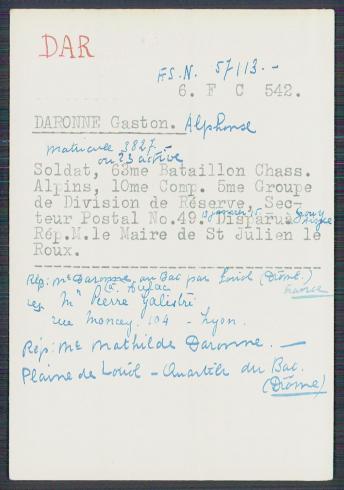 DAR
F.S.N. 57113.-
6. F C 542.
DARONNE Gaston. Alphonse
Matricule 3827.-
ou 23 active
Soldat, 63me Bataillon Chass.
Alpins, 10me Comp. 5me Groupe
de Division de Réserve, Sec-
teur Postal No.49. Disparu à
Rép.M.le Maire de St Julien le
Roux.
Rép. Me Daronne au Bac par Loriol (Drôme.)
France
rep Mr Pierre
rue Moncey. 104 - Lyon.
Rép: Me Mathilde Daronne. —
Plaine de Loriol - Quartier du Bac.
(Drôme)